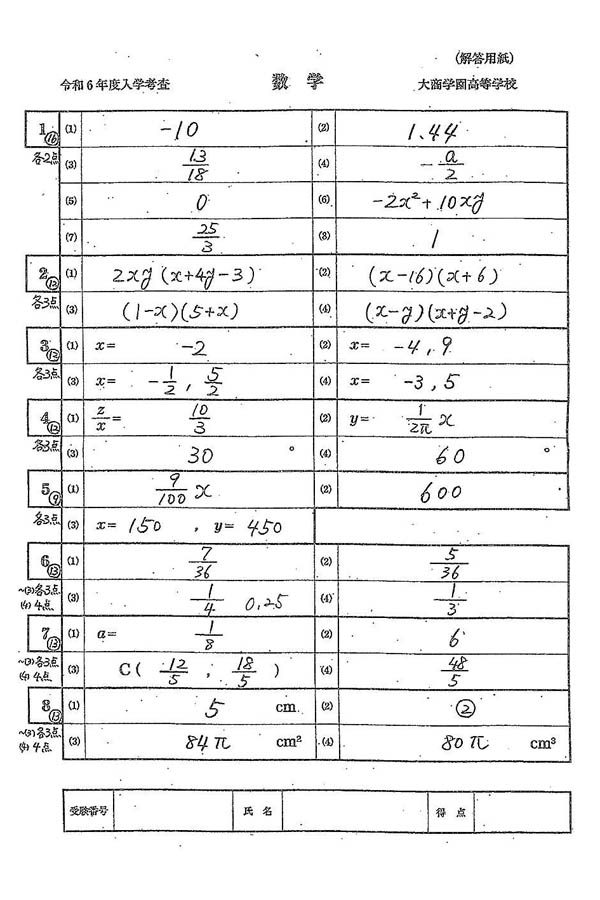 (解答用紙)
令和6年度入学考査 数 学 大商学園高等学校
1 ⑯ (1) -10 (2) 1.44
各2点 (3) 13/18 (4) -a/2
(5) 0 (6) -2x²+10xy
(7) 25/3 (8) 1
2 ⑫ (1) 2xy(x+4y-3) (2) (x-16)(x+6)
各3点 (3) (1-x)(5+x) (4) (x-y)(x+y-2)
3 ⑫ (1) x= -2 (2) x= -4, 9
各3点 (3) x= -1/2, 5/2 (4) x= -3, 5
4 ⑫ (1) z/x= 10/3 (2) y= 1/2π x
各3点 (3) 30° (4) 60°
5 ⑨ (1) 9/100 x (2) 600
各3点 (3) x= 150 , y= 450
6 ⑬ (1) 7/36 (2) 5/36
~(3)各3点 (4) 4点 (3) 1/4 0.25 (4) 1/3
7 ⑬ (1) a= 1/8 (2) 6
~(3)各3点 (4) 4点 (3) C( 12/5 , 18/5 ) (4) 48/5
8 ⑬ (1) 5 cm (2) ②
~(3)各3点 (4) 4点 (3) 84π cm² (4) 80π cm³
受験番号 氏名 得点